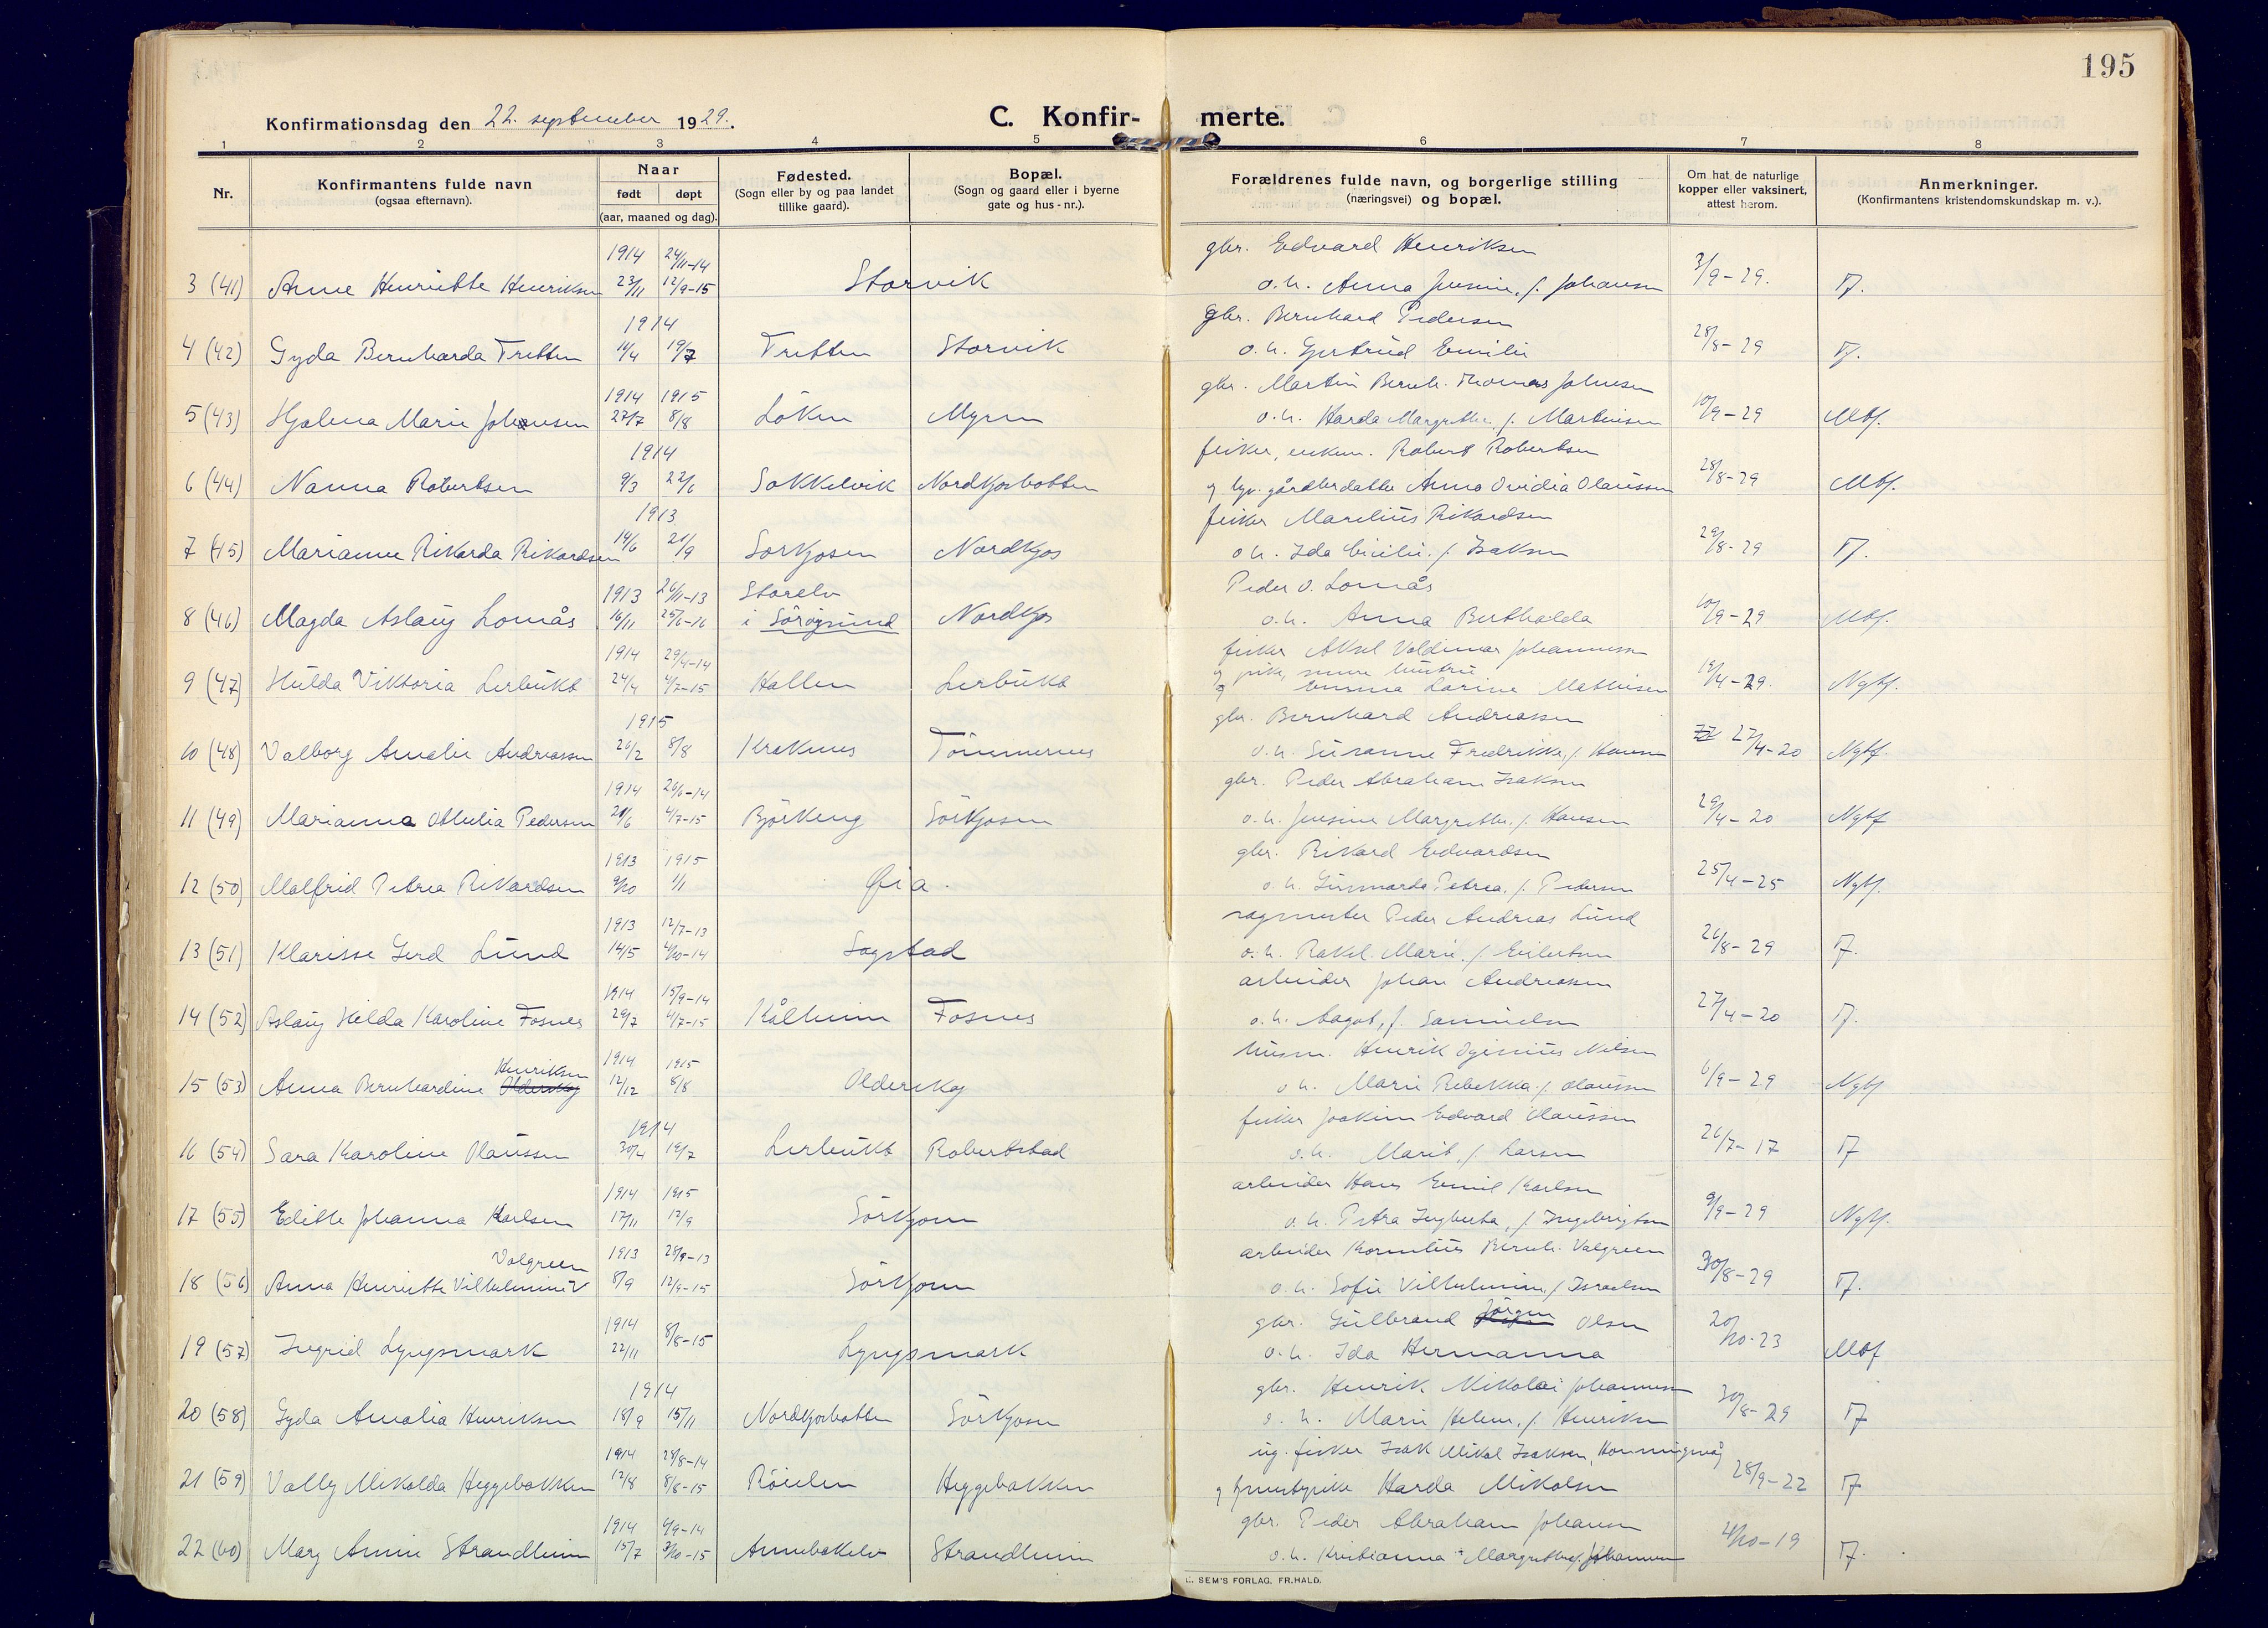 195
Konfirmationsdag den 22. september 1929.
C. Konfir- merte.
1 2 3 4 5 6 7 8
Nr.
Konfirmantens fulde navn
(ogsaa efternavn).
Naar
født døpt
(aar, maaned og dag).
Fødested.
(Sogn eller by og paa landet
tillike gaard).
Bopæl.
(Sogn og gaard eller i byerne
gate og hus-nr.).
Forældrenes fulde navn, og borgerlige stilling
(næringsvei) og bopæl.
Om hat de naturlige
kopper eller vaksinert,
attest herom.
Anmerkninger.
(Konfirmantens kristendomskundskap m. v.).
1914 24/11-14 gbr. Edvard Henriksen
3 (41) Anne Henriette Henriksen 23/11 12/9-15 Storvik o.h. Anna Jensine, f. Johansen 3/9-29. T.
1914 gbr. Bernhard Pedersen
4 (42) Gyda Bernharda Tretten 14/4 19/7 Tretten Storvik o.h. Gjertrud Emilie 28/8-29 T.
1914 1915 gbr. Martin Bernh. Thomas Johnsen
5 (43) Hjalma Marie Johnsen 27/7 8/8 Löken Myren o.h. Harda Margrethe, f. Martinsen 10/9-29 Mtf.
1914 fisker, enkem. Robert Robertsen
6 (44) Nanna Robertsen 9/3 22/6 Sokkelvik Nordkjosbotten og gårdbrdatter Anna Ovidia Olaussen 28/8-29 Mtf.
1913 fisker Marelius Rikardsen
7 (45) Marianne Rikarda Rikardsen 14/6 21/9 Sorkjosen Nordkjos o.h. Ida Cicilie, f. Isaksen 29/8-29 T.
1913 26/11-13 Storelv Peder O. Lomås
8 (46) Magda Aslaug Lomås 16/11 25/6-16 i Sörøysund Nordkjos o.h. Anna Berthalda 10/9-29 Mtf.
1914 29/4-14 fisker Aksel Valdemar Johannessen
og pike, senere hustru
9 (47) Hulda Viktoria Lerbukt 24/4 4/7-15 Hallen Lerbukt Emma Larine Mathisen 19/4-29. Ngtf.
1915 gbr. Bernhard Andreassen
10 (48) Valborg Amalie Andreassen 20/2 8/8 Kraknes Tömmernes o.h. Susanne Fredrikke, f. Hansen 27/4-20 Ngtf.
1914 26/6-14 gbr. Peder Abraham Isaksen
11 (49) Marianna Othilia Pedersen 21/6 4/7-15 Björkeng Sörkjosen o.h. Jensine Margrethe, f. Hansen 29/4-20 Ngtf
1913 1915 gbr. Rikard Edvardsen
12 (50) Malfrid Petrea Rikardsen 9/10 1/1 Øia. o.h. Gunnarda Petrea, f. Pedersen 25/4-25 Ngtf.
1913 12/7-13 sagmester Peder Andreas Lund
13 (51) Klarisse Gerd Lund 14/5 4/10-14 Sagstad o.h. Rakel Marie, f. Eilertsen 26/8-29 T.
1914 15/9-14 arbeider Johan Andreassen
14 (52) Aslaug Hilda Karoline Fosnes 29/7 4/7-15 Kålheim Fosnes o.h. Aagot, f. Samuelsen 27/4-20 T.
Henriksen 1914 1915 husm. Henrik Oginius Nilsen
15 (53) Anna Bernhardine Olderskog 12/12 8/8 Olderskog o.h. Marie Rebekka, f. Olaussen 6/9-29 Ngtf
1914 fisker Joakim Edvard Olaussen
16 (54) Sara Karoline Olaussen 30/4 19/7 Lerbukt Robertstad o.h. Marit, f. Larsen 26/7-17 T
1914 1915 arbeider Hans Emil Karlsen
17 (55) Edith Johanna Karlsen 17/11 12/9 Sörkjosen o.h. Petra Ingberta, f. Ingebrigtsen 9/9-29 Ngtf.
Valgreen 1913 28/9-13 arbeider Kornelius Bernh. Valgreen
18 (56) Anna Henriette Vilhelmine V 8/9 12/9-15 Sörkjosen o.h. Sofie Vilhelmine, f. Israelsen 30/8-29 T.
1914 Jörgen
19 (57) Ingrid Lyngsmark 22/11 8/8-15 Lyngsmark gbr. Gulbrand Olsen
o.h. Ida Hermanna 20/10-23 Mtf
1914 gbr. Henrik Mikolai Johannessen
20 (58) Gyda Amalia Henriksen 18/9 15/11 Nordkjosbotten Sörkjosen o.h. Marie Helene, f. Henriksen 30/8-29 T
1914 28/8-14 ug. fisker Isak Mikal Isaksen, Honningsvåg
21 (59) Vally Mikalda Heggebakken 12/8 8/8-15 Röielen Heggebakken og tjenestepike Harda Mikalsen 28/9-22 T
1914 6/9-14 gbr. Peder Abraham Johansen
22 (60) Mary Annie Strandheim 15/7 3/10-15 Annebakelv Strandheim o.h. Kristianna Margrethe, f. Johannesen 4/10-19 T.
E. SEM'S FORLAG, FR.HALD.